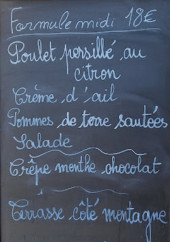 Formule midi 18€
Poulet persillé au
citron
Crème d'ail
Pommes de terre sautées
Salade
Crêpe menthe chocolat
Terrasse côté montagne